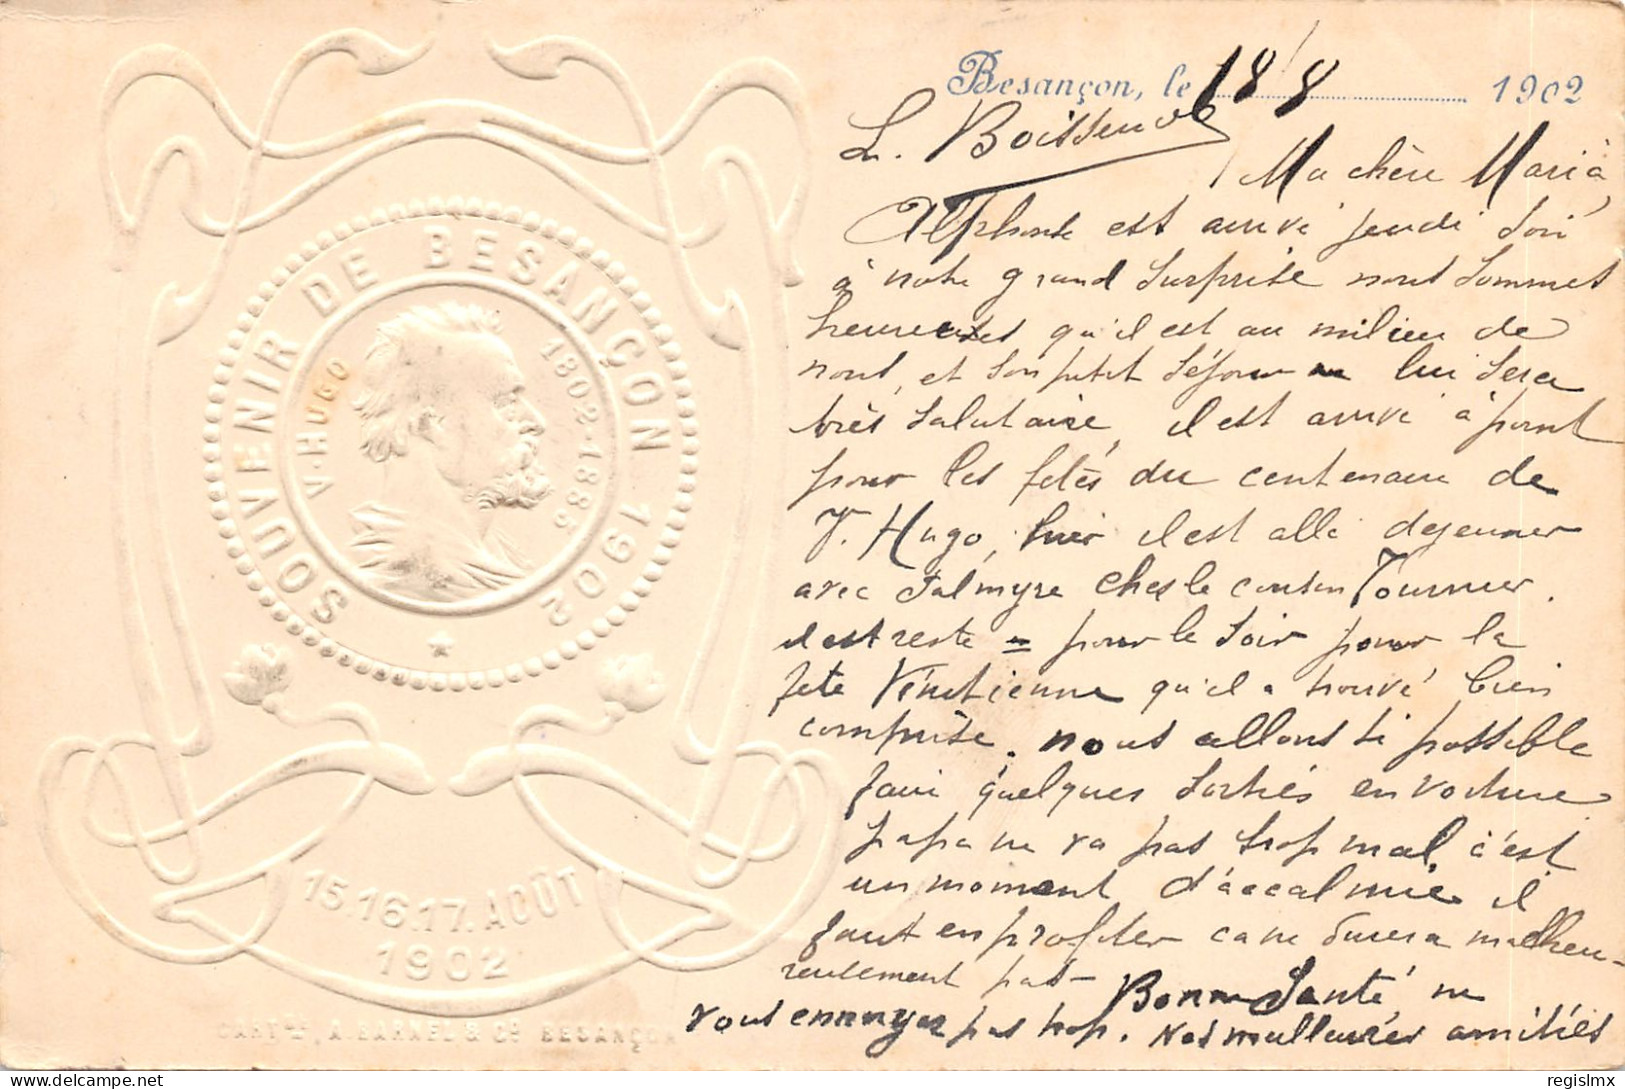 SOUVENIR DE BESANÇON 1902
V. HUGO 1802-1885
15.16.17. AOÛT
1902
BESANÇON
Besançon, le 18/8 1902
L.
Ma chère Maria,
Alphonse est arrivé jeudi soir
à notre grand surprise nous sommes
heureuses qu'il est au milieu de
nous, et son petit séjour lui sera
très salutaire, il est arrivé à point
pour les fetes du centenaire de
V. Hugo, hier il est allé dejeuner
avec Palmyre ches le cousin Tournier.
il est resté pour le soir pour la
fete Vénitienne qu'il a trouvé bien
comprise. nous allons si possible
faire quelques sorties en voiture
papa ne va pas trop mal, c'est
un moment d'accalmie il
faut en profiter ca ne durera malheu-
reusement pas - Bonne Santé ne
vous ennuyez pas trop. Nos meilleures amitiés
regislmx